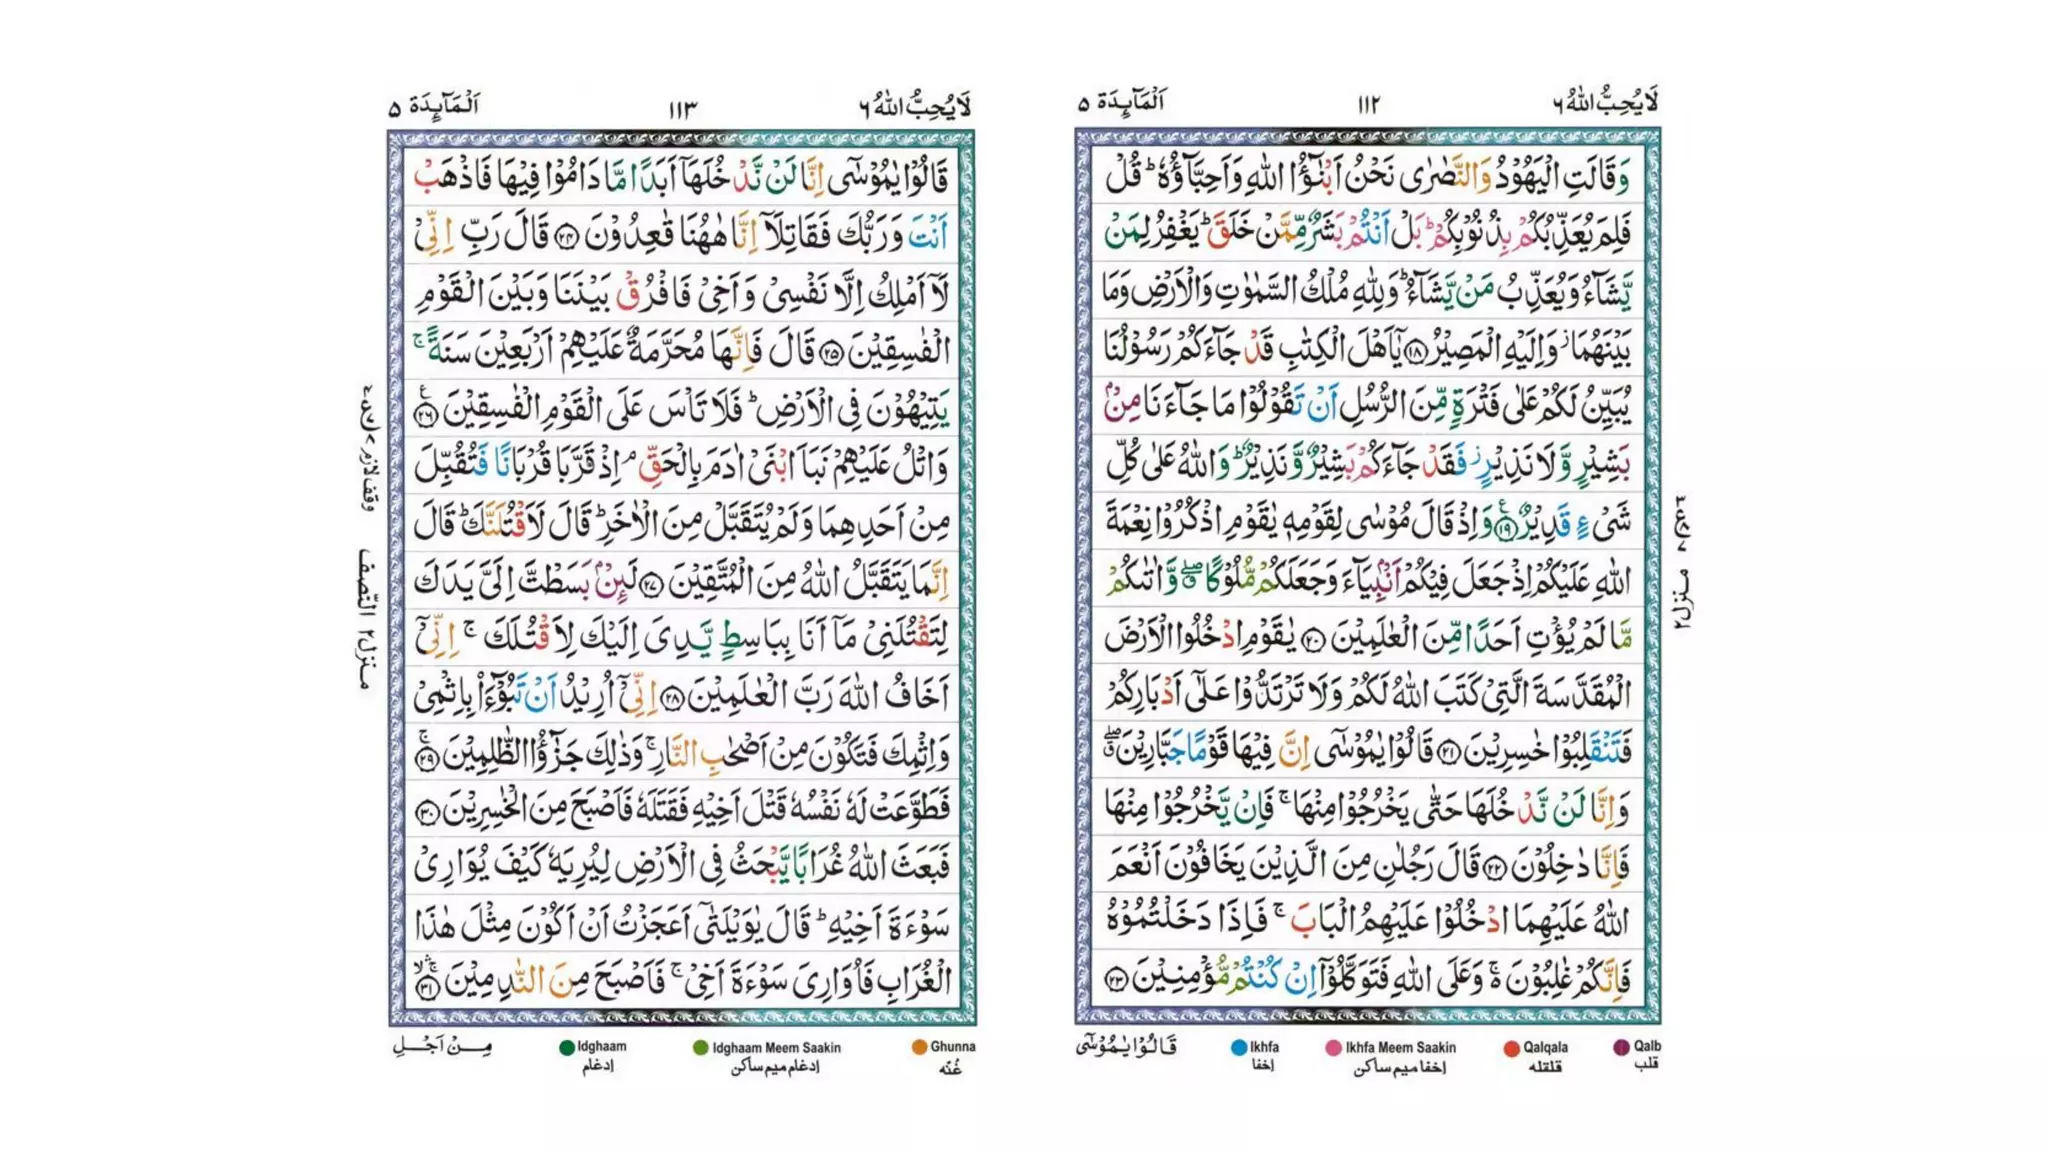 لَا يُحِبُّ اللّٰهُ ٦
١١٢
اَلْمَآئِدَة ٥
وَقَالَتِ الْيَهُوْدُ وَالنَّصٰرٰى نَحْنُ اَبْنٰٓؤُا اللّٰهِ وَاَحِبَّآؤُهٗ ؕ قُلْ
فَلِمَ يُعَذِّبُكُمْ بِذُنُوْبِكُمْ ؕ بَلْ اَنْتُمْ بَشَرٌ مِّمَّنْ خَلَقَ ؕ يَغْفِرُ لِمَنْ
يَّشَآءُ وَيُعَذِّبُ مَنْ يَّشَآءُ ؕ وَلِلّٰهِ مُلْكُ السَّمٰوٰتِ وَالْاَرْضِ وَمَا
بَيْنَهُمَا ؗ وَاِلَيْهِ الْمَصِيْرُ ۝١٨ يٰۤاَهْلَ الْكِتٰبِ قَدْ جَآءَكُمْ رَسُوْلُنَا
يُبَيِّنُ لَكُمْ عَلٰى فَتْرَةٍ مِّنَ الرُّسُلِ اَنْ تَقُوْلُوْا مَا جَآءَنَا مِنْۢ
بَشِيْرٍ وَّلَا نَذِيْرٍ ؗ فَقَدْ جَآءَكُمْ بَشِيْرٌ وَّنَذِيْرٌ ؕ وَاللّٰهُ عَلٰى كُلِّ
شَىْءٍ قَدِيْرٌ ۝١٩ وَاِذْ قَالَ مُوْسٰى لِقَوْمِهٖ يٰقَوْمِ اذْكُرُوْا نِعْمَةَ
اللّٰهِ عَلَيْكُمْ اِذْ جَعَلَ فِيْكُمْ اَنْۢبِيَآءَ وَجَعَلَكُمْ مُّلُوْكًا ۖ وَّاٰتٰىكُمْ
مَّا لَمْ يُؤْتِ اَحَدًا مِّنَ الْعٰلَمِيْنَ ۝٢٠ يٰقَوْمِ ادْخُلُوا الْاَرْضَ
الْمُقَدَّسَةَ الَّتِىْ كَتَبَ اللّٰهُ لَكُمْ وَلَا تَرْتَدُّوْا عَلٰٓى اَدْبَارِكُمْ
فَتَنْقَلِبُوْا خٰسِرِيْنَ ۝٢١ قَالُوْا يٰمُوْسٰٓى اِنَّ فِيْهَا قَوْمًا جَبَّارِيْنَ ۖ
وَاِنَّا لَنْ نَّدْخُلَهَا حَتّٰى يَخْرُجُوْا مِنْهَا ۚ فَاِنْ يَّخْرُجُوْا مِنْهَا
فَاِنَّا دٰخِلُوْنَ ۝٢٢ قَالَ رَجُلٰنِ مِنَ الَّذِيْنَ يَخَافُوْنَ اَنْعَمَ
اللّٰهُ عَلَيْهِمَا ادْخُلُوْا عَلَيْهِمُ الْبَابَ ۚ فَاِذَا دَخَلْتُمُوْهُ
فَاِنَّكُمْ غٰلِبُوْنَ ۚ۬ وَعَلَى اللّٰهِ فَتَوَكَّلُوْٓا اِنْ كُنْتُمْ مُّؤْمِنِيْنَ ۝٢٣
منزل ٢
قَالُوْا يٰمُوْسٰٓى
Ikhfa
اِخفا
Ikhfa Meem Saakin
اخفا ميم ساكن
Qalqala
قلقله
Qalb
قلب
لَا يُحِبُّ اللّٰهُ ٦
١١٣
اَلْمَآئِدَة ٥
قَالُوْا يٰمُوْسٰٓى اِنَّا لَنْ نَّدْخُلَهَآ اَبَدًا مَّا دَامُوْا فِيْهَا فَاذْهَبْ
اَنْتَ وَرَبُّكَ فَقَاتِلَآ اِنَّا هٰهُنَا قٰعِدُوْنَ ۝٢٤ قَالَ رَبِّ اِنِّىْ
لَآ اَمْلِكُ اِلَّا نَفْسِىْ وَاَخِىْ فَافْرُقْ بَيْنَنَا وَبَيْنَ الْقَوْمِ
الْفٰسِقِيْنَ ۝٢٥ قَالَ فَاِنَّهَا مُحَرَّمَةٌ عَلَيْهِمْ اَرْبَعِيْنَ سَنَةً ۚ
يَتِيْهُوْنَ فِى الْاَرْضِ ؕ فَلَا تَاْسَ عَلَى الْقَوْمِ الْفٰسِقِيْنَ ۝٢٦
وَاتْلُ عَلَيْهِمْ نَبَاَ ابْنَىْ اٰدَمَ بِالْحَقِّ ۘ اِذْ قَرَّبَا قُرْبَانًا فَتُقُبِّلَ
مِنْ اَحَدِهِمَا وَلَمْ يُتَقَبَّلْ مِنَ الْاٰخَرِ ؕ قَالَ لَاَقْتُلَنَّكَ ؕ قَالَ
اِنَّمَا يَتَقَبَّلُ اللّٰهُ مِنَ الْمُتَّقِيْنَ ۝٢٧ لَئِنْۢ بَسَطْتَّ اِلَىَّ يَدَكَ
لِتَقْتُلَنِىْ مَآ اَنَا بِبَاسِطٍ يَّدِىَ اِلَيْكَ لِاَقْتُلَكَ ۚ اِنِّىْٓ
اَخَافُ اللّٰهَ رَبَّ الْعٰلَمِيْنَ ۝٢٨ اِنِّىْٓ اُرِيْدُ اَنْ تَبُوْٓءَا۟ بِاِثْمِىْ
وَاِثْمِكَ فَتَكُوْنَ مِنْ اَصْحٰبِ النَّارِ ۚ وَذٰلِكَ جَزٰٓؤُا الظّٰلِمِيْنَ ۝٢٩
فَطَوَّعَتْ لَهٗ نَفْسُهٗ قَتْلَ اَخِيْهِ فَقَتَلَهٗ فَاَصْبَحَ مِنَ الْخٰسِرِيْنَ ۝٣٠
فَبَعَثَ اللّٰهُ غُرَابًا يَّبْحَثُ فِى الْاَرْضِ لِيُرِيَهٗ كَيْفَ يُوَارِىْ
سَوْءَةَ اَخِيْهِ ؕ قَالَ يٰوَيْلَتٰٓى اَعَجَزْتُ اَنْ اَكُوْنَ مِثْلَ هٰذَا
الْغُرَابِ فَاُوَارِىَ سَوْءَةَ اَخِىْ ۚ فَاَصْبَحَ مِنَ النّٰدِمِيْنَ ۝٣١
وقف لازم
النّصف
منزل ٢
مِنْ اَجْلِ
Idghaam
اِدغام
Idghaam Meem Saakin
اِدغام ميم ساكن
Ghunna
غُنّه